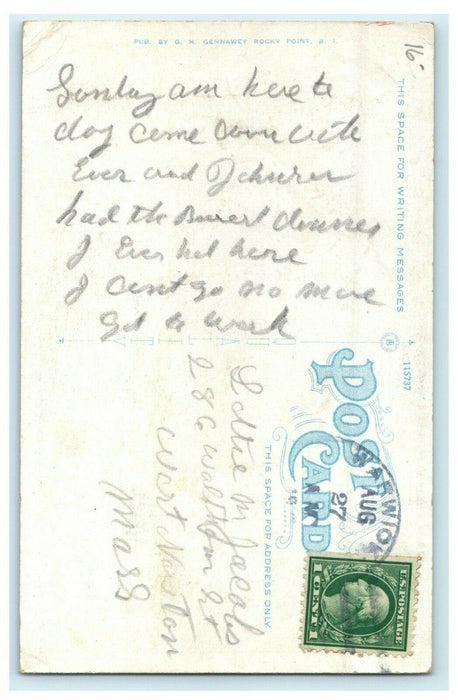 PUB. BY G. H. GENNAWEY ROCKY POINT, R. I.
16
THIS SPACE FOR WRITING MESSAGES
Sunday am here to
day come down with
Ever and
had the dinner
I Ever het here
I cant go no more
got to work
115737
POST CARD
THIS SPACE FOR ADDRESS ONLY
WARWICK
AUG
27
U.S. POSTAGE
1 CENT 1
Lottie M Jacobs
286 Waltham St
West Newton
Mass